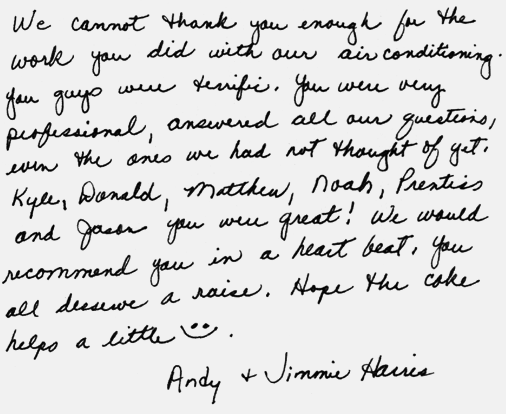 We cannot thank you enough for the
work you did with our air conditioning.
You guys were terrific. You were very
professional, answered all our questions,
even the ones we had not thought of yet.
Kyle, Donald, Matthew, Noah, Prentiss
and Jason you were great! We would
recommend you in a heart beat. You
all desserve a raise. Hope the coke
helps a little
Andy + Jimmie Harris